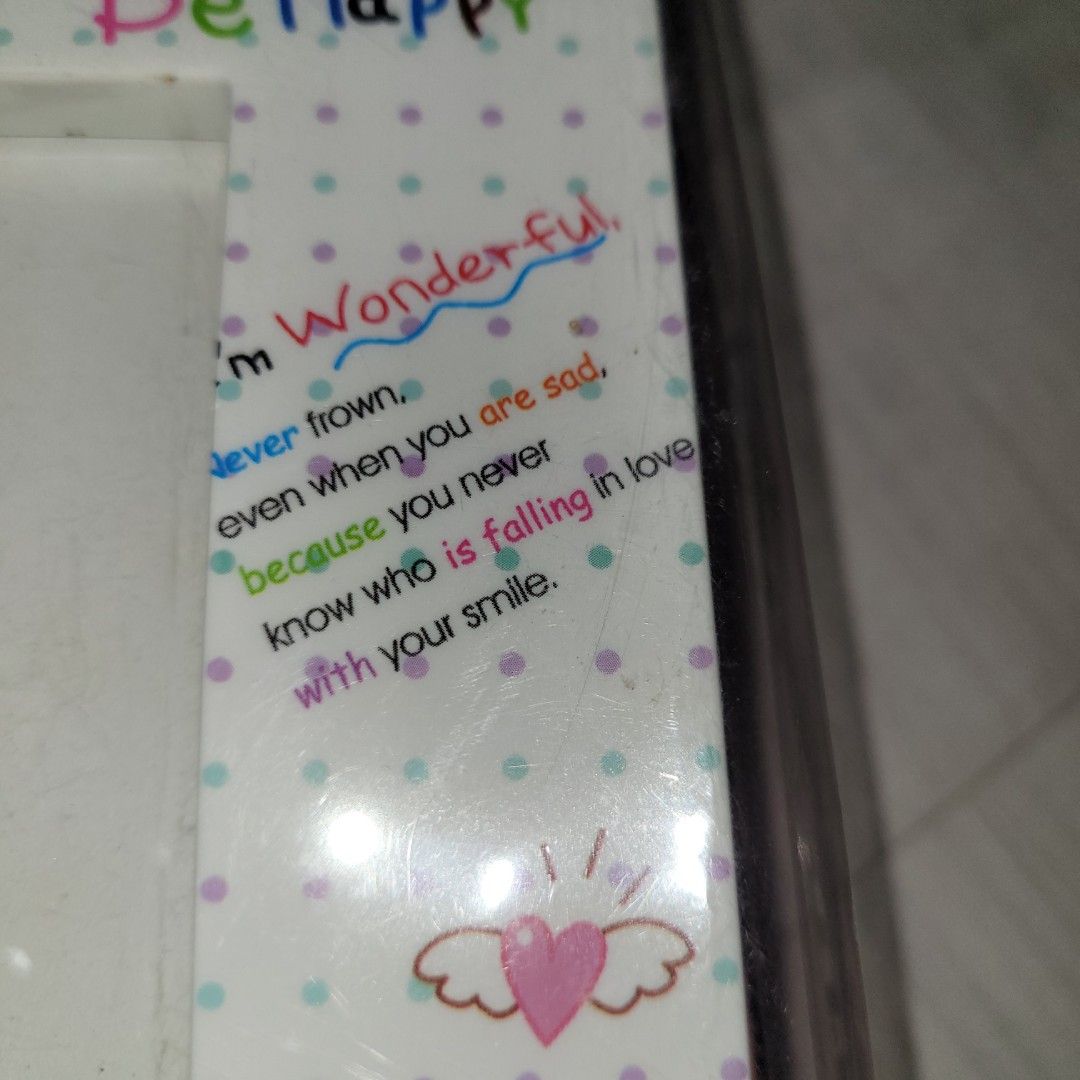 Be Happy
I'm Wonderful.
Never frown,
even when you are sad,
because you never
know who is falling in love
with your smile.